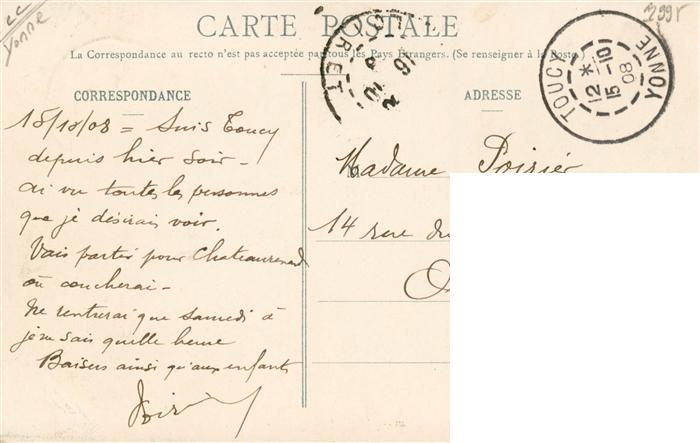 cc
Yonne
299r
CARTE POSTALE
La Correspondance au recto n'est pas acceptée par tous les Pays Étrangers. (Se renseigner à la Poste.)
RET
TOUCY YONNE
12 *
15 -10
08
CORRESPONDANCE
15/10/08 = Suis Toucy
depuis hier soir -
ai vu toutes les personnes
que je désirais voir.
Vais partir pour Chateaurenard
où coucherai -
Ne rentrerai que samedi à
je ne sais quelle heure
Baisers ainsi qu'aux enfants
ADRESSE
Madame Poirier
14 rue du